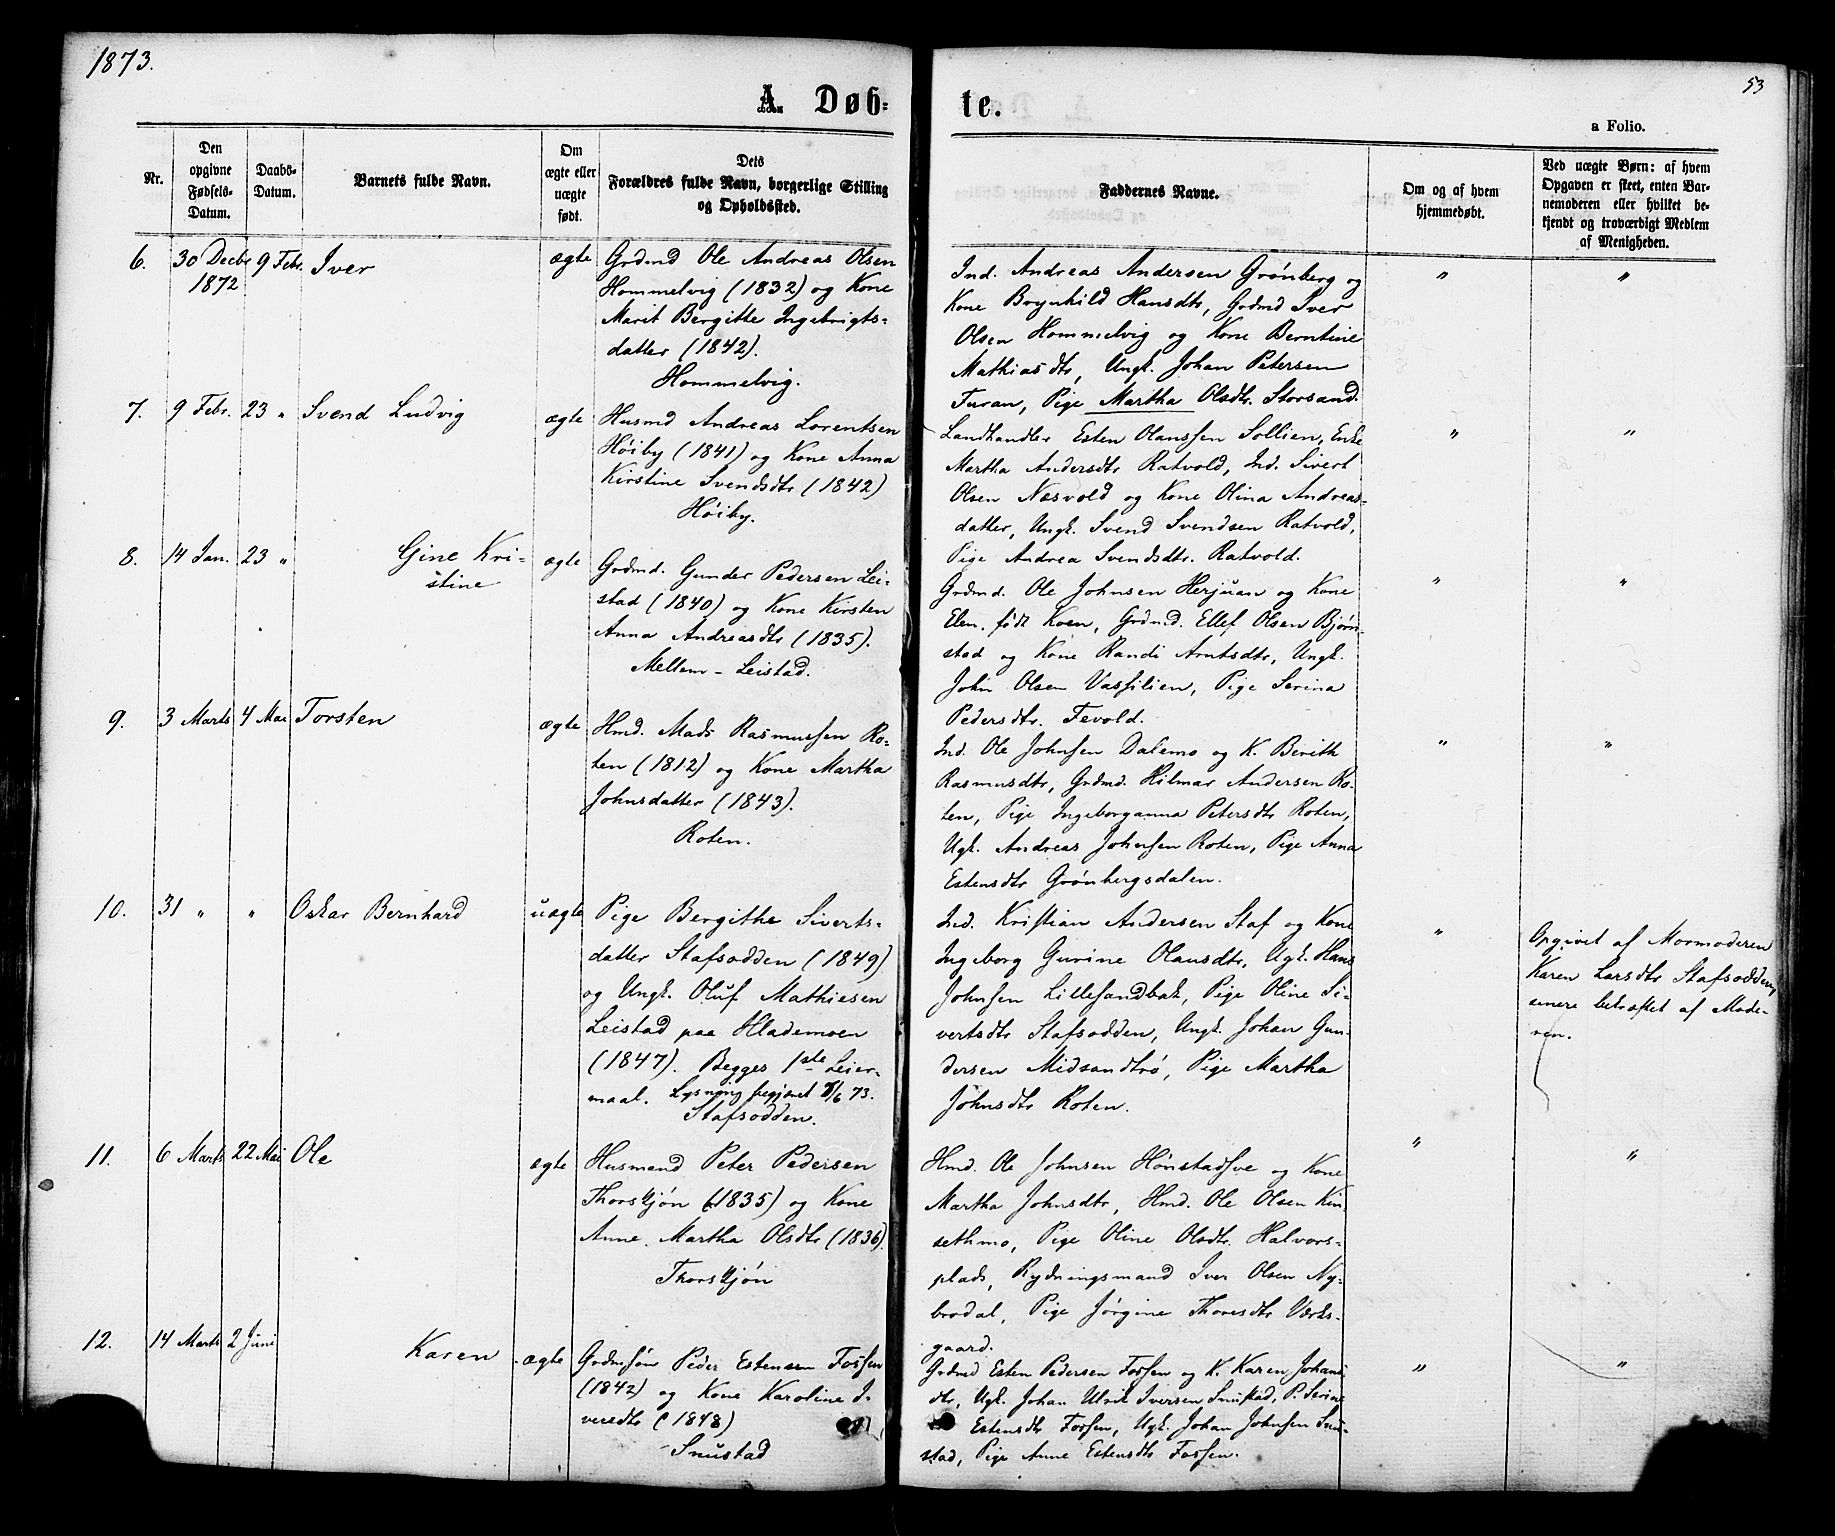 1873.
53
A. Døb-
te.
a Folio.
Nr.
Den
opgivne
Fødsels-
Datum.
Daabs-
Datum.
Barnets fulde Navn.
Om
ægte eller
uægte
født.
Dets
Forældres fulde Navn, borgerlige Stilling
og Opholdssted.
Faddernes Navne.
Om og af hvem
hjemmedøbt.
Ved uægte Børn: af hvem
Opgaven er skeet, enten Bar-
nemoderen eller hvilket be-
kjendt og troværdigt Medlem
af Menigheden.
6. 30 Decbr 9 Febr. Iver ægte
1872
Grdmd Ole Andreas Olsen
Hommelvig (1832) og Kone
Marit Bergitte Ingebrigts-
datter (1842).
Hommelvig.
Ind. Andreas Andersen Grönberg og
Kone Brynhild Hansdtr, Grdmd Iver
Olsen Hommelvig og Kone Berntine
Mathiasdtr, Ungk. Johan Petersen
Turan, Pige Martha Olsdtr. Storsand.
" "
7. 9 Febr. 23 " Svend Ludvig ægte
Husmd Andreas Lorentsen
Höiby (1841) og Kone Anna
Kirstine Svendsdtr (1842)
Höiby.
Landhandler Esten Olanssen Sollien, Enke
Martha Andersdtr Ratvold, Ind. Sivert
Olsen Næsvold og Kone Olina Andreas-
datter, Ungk. Svend Svendsen Ratvold,
Pige Andrea Svendsdtr. Ratvold.
" "
8. 14 Jan. 23 " Gine Kri-
stine ægte
Grdmd. Gunder Pedersen Lei-
stad (1840) og Kone Kirsten
Anna Andreasdtr (1835).
Mellem-Leistad.
Grdmd. Ole Johnsen Herjuan og Kone
Elen, født Koen, Grdmd. Ellef Olsen Bjørn-
stad og Kone Randi Arntsdtr, Ungk.
John Olsen Vassilien, Pige Serina
Pedersdtr. Tevold.
" "
9. 3 Marts 4 Mai Torsten ægte
Hmd. Mads Rasmussen Ro-
ten (1812) og Kone Martha
Johnsdatter (1843).
Roten.
Ind. Ole Johnsen Dalemo og K. Berith
Rasmusdtr, Grdmd. Hilmar Andersen Ro-
ten, Pige Ingeborganna Petersdtr Roten,
Ugk. Andreas Johnsen Roten, Pige Anna
Estensdtr Grönbergsdalen.
" "
10. 31 " " Oskar Bernhard uægte
Pige Bergithe Siverts-
datter Stafsodden (1849)
og Ungk. Oluf Mathiesen
Leistad paa Hlademoen
(1847). Begges 1ste Leier-
maal. Lysning begjæret 8/6 73.
Stafsodden.
Ind. Kristian Andersen Staf og Kone
Ingeborg Gurine Olausdtr, Ugk. Hans
Johnsen Lillesandbak, Pige Oline Si-
vertsdtr Stafsodden, Ungk. Johan Gun-
dersen Midsandtrø, Pige Martha
Johnsdtr Roten.
"
Opgivet af Mormoderen
Karen Larsdtr Stafsodden,
senere bekræftet af Mode-
ren.
11. 6 Marts 22 Mai Ole ægte
Husmand Peter Pedersen
Thorskjön (1835) og Kone
Anne Martha Olsdtr (1836).
Thorskjön
Hmd. Ole Johnsen Hönstadsve og Kone
Martha Johnsdtr, Hmd. Ole Olsen Kin-
sethmo, Pige Oline Olsdtr. Halvors-
plads, Rydningsmand Iver Olsen Ny-
brodal, Pige Jörgine Thoresdtr Værks-
gaard.
" "
12. 14 Marts 2 Juni Karen ægte
Grdmsön Peder Estensen Fossen
(1842) og Kone Karoline I-
versdtr (1848)
Snustad
Grdmd Esten Pedersen Fossen og K. Karen Johans-
dtr, Ugk. Johan Ulrik Iversen Snustad, P. Serine
Estensdtr Fossen, Ugk. Johan Johnsen Snu-
stad, Pige Anne Estensdtr Fossen.
" "